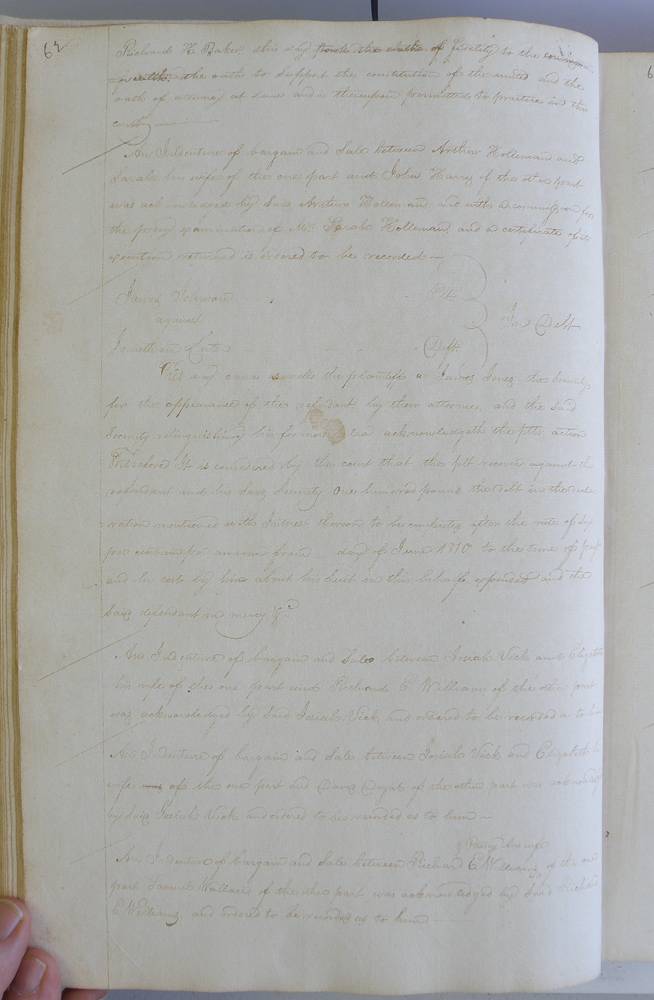 62
Richard H. Baker this day took the oaths of fidelity to the common
wealth, the oath to support the constitution of the united and the
oath of attorney at Law and is thereupon permitted to practice in this
court
An Indenture of bargain and Sale between Arthur Holleman and
Sarah his wife of the one part and John Harris of the other part
was acknowledged by said Arthur Holleman and with a commission for
the privy examination of Mrs Sarah Holleman and a certificate of
returned is ordered to be recorded
James Johnson Plt
against In Debt
Jonathan Deft
This day came the plaintiff James Jones the Security
for the appearance of the defendant by their attornies, and the said
Security relinquishing his former plea acknowledgeth the plts action
Therefore It is considered by the court that the plt recover against the
defendant and his said Security One hundred pounds the debt in the decla
ration mentioned with Interest thereon to be computed after the rate of six
per centum per annum from day of June 1810 to the time of
and his costs by him about his suit in this behalf expended and the
said defendant in mercy &c
An Indenture of bargain and Sale between Josiah Vick and Elizabeth
his wife of the one part and Richard E Williams of the other part
was acknowledged by said Josiah Vick and ordered to be recorded as to him
An Indenture of bargain and Sale between Josiah Vick and Elizabeth his
wife of the one part and of the other part was acknowledged
by said Josiah Vick and ordered to be recorded as to him
his wife
An Indenture of bargain and Sale between Richard E Williams of the one
part Samuel Wallace of the other part was acknowledged by said Richard
E Williams and ordered to be recorded as to him